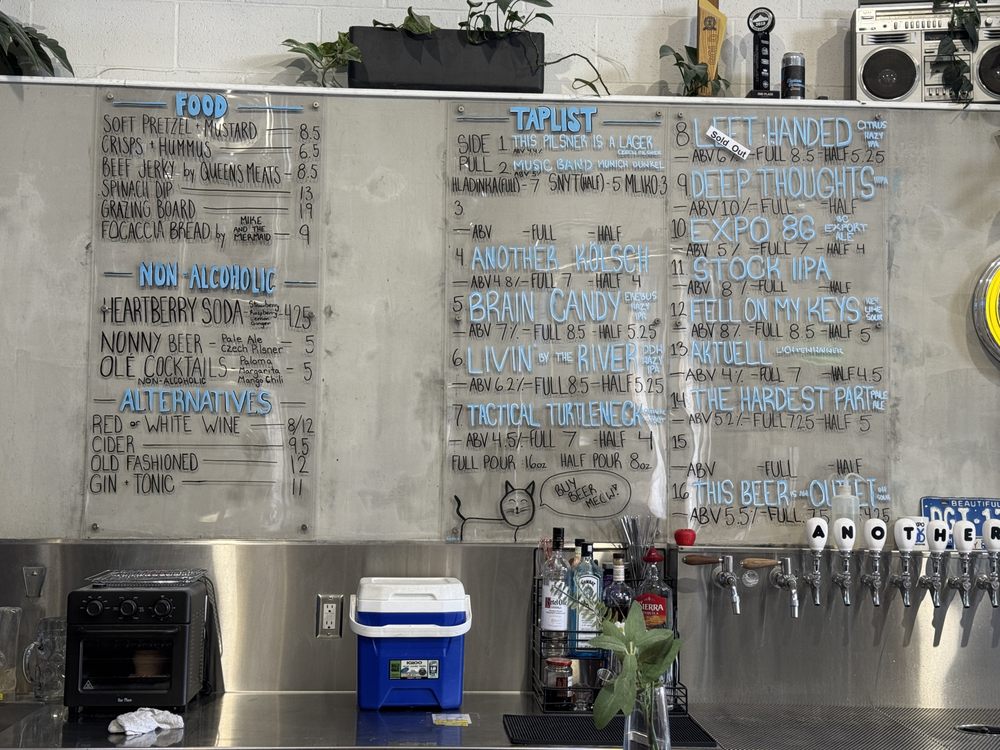 FOOD
SOFT PRETZEL + MUSTARD — 8.5
CRISPS + HUMMUS — 6.5
BEEF JERKY by QUEENS MEATS - 8.5
SPINACH DIP — 13
GRAZING BOARD — 19
FOCACCIA BREAD by MIKE AND THE MERMAID — 9
NON-ALCOHOLIC
HEARTBERRY SODA - Strawberry Raspberry Lemon Ginger - 4.25
NONNY BEER - Pale Ale Czech Pilsner - 5
OLÉ COCKTAILS - Paloma Margarita Mango Chili - 5
NON-ALCOHOLIC
ALTERNATIVES
RED or WHITE WINE — 8/12
CIDER — 9.5
OLD FASHIONED — 12
GIN + TONIC — 11
TAPLIST
SIDE 1 THIS PILSNER IS A LAGER
PULL 2 MUSIC BAND MUNICH DUNKEL
HLADINKA(FULL)-7 SNYT(HALF)-5 MLIKO-3
3
-ABV -FULL -HALF
4 ANOTHER KÖLSCH
-ABV 4.8% -FULL 7 -HALF 4
5 BRAIN CANDY HAZY IPA
-ABV 7% -FULL 8.5 -HALF 5.25
6 LIVIN' BY THE RIVER DDH HAZY IPA
-ABV 6.2% -FULL 8.5 -HALF 5.25
7 TACTICAL TURTLENECK
-ABV 4.5% -FULL 7 -HALF 4
FULL POUR 16oz HALF POUR 8oz
BUY BEER MEOW!
8 LEFT HANDED CITRUS HAZY IPA
Sold Out
-ABV 6% -FULL 8.5 -HALF 5.25
9 DEEP THOUGHTS
-ABV 10% -FULL -HALF
10 EXPO 86 BC EXPORT ALE
-ABV 5% -FULL 7 -HALF 4
11 STOCK IIPA
-ABV 8% -FULL -HALF
12 FELL ON MY KEYS KEY LIME SOUR
-ABV 8% -FULL 8.5 -HALF 5
13 AKTUELL LICHTENHAINER
-ABV 4% -FULL 7 -HALF 4.5
14 THE HARDEST PART PALE ALE
-ABV 5.2% -FULL 7.25 -HALF 5
15
-ABV -FULL -HALF
16 THIS BEER IS AN OUTLET
-ABV 5.5% -FULL 7.5
BEAUTIFUL
ANOTHER
IGLOO
Ketel
SIERRA